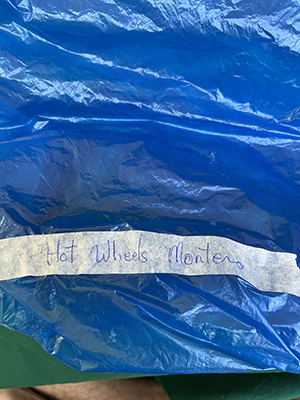 Hot Wheels Montero